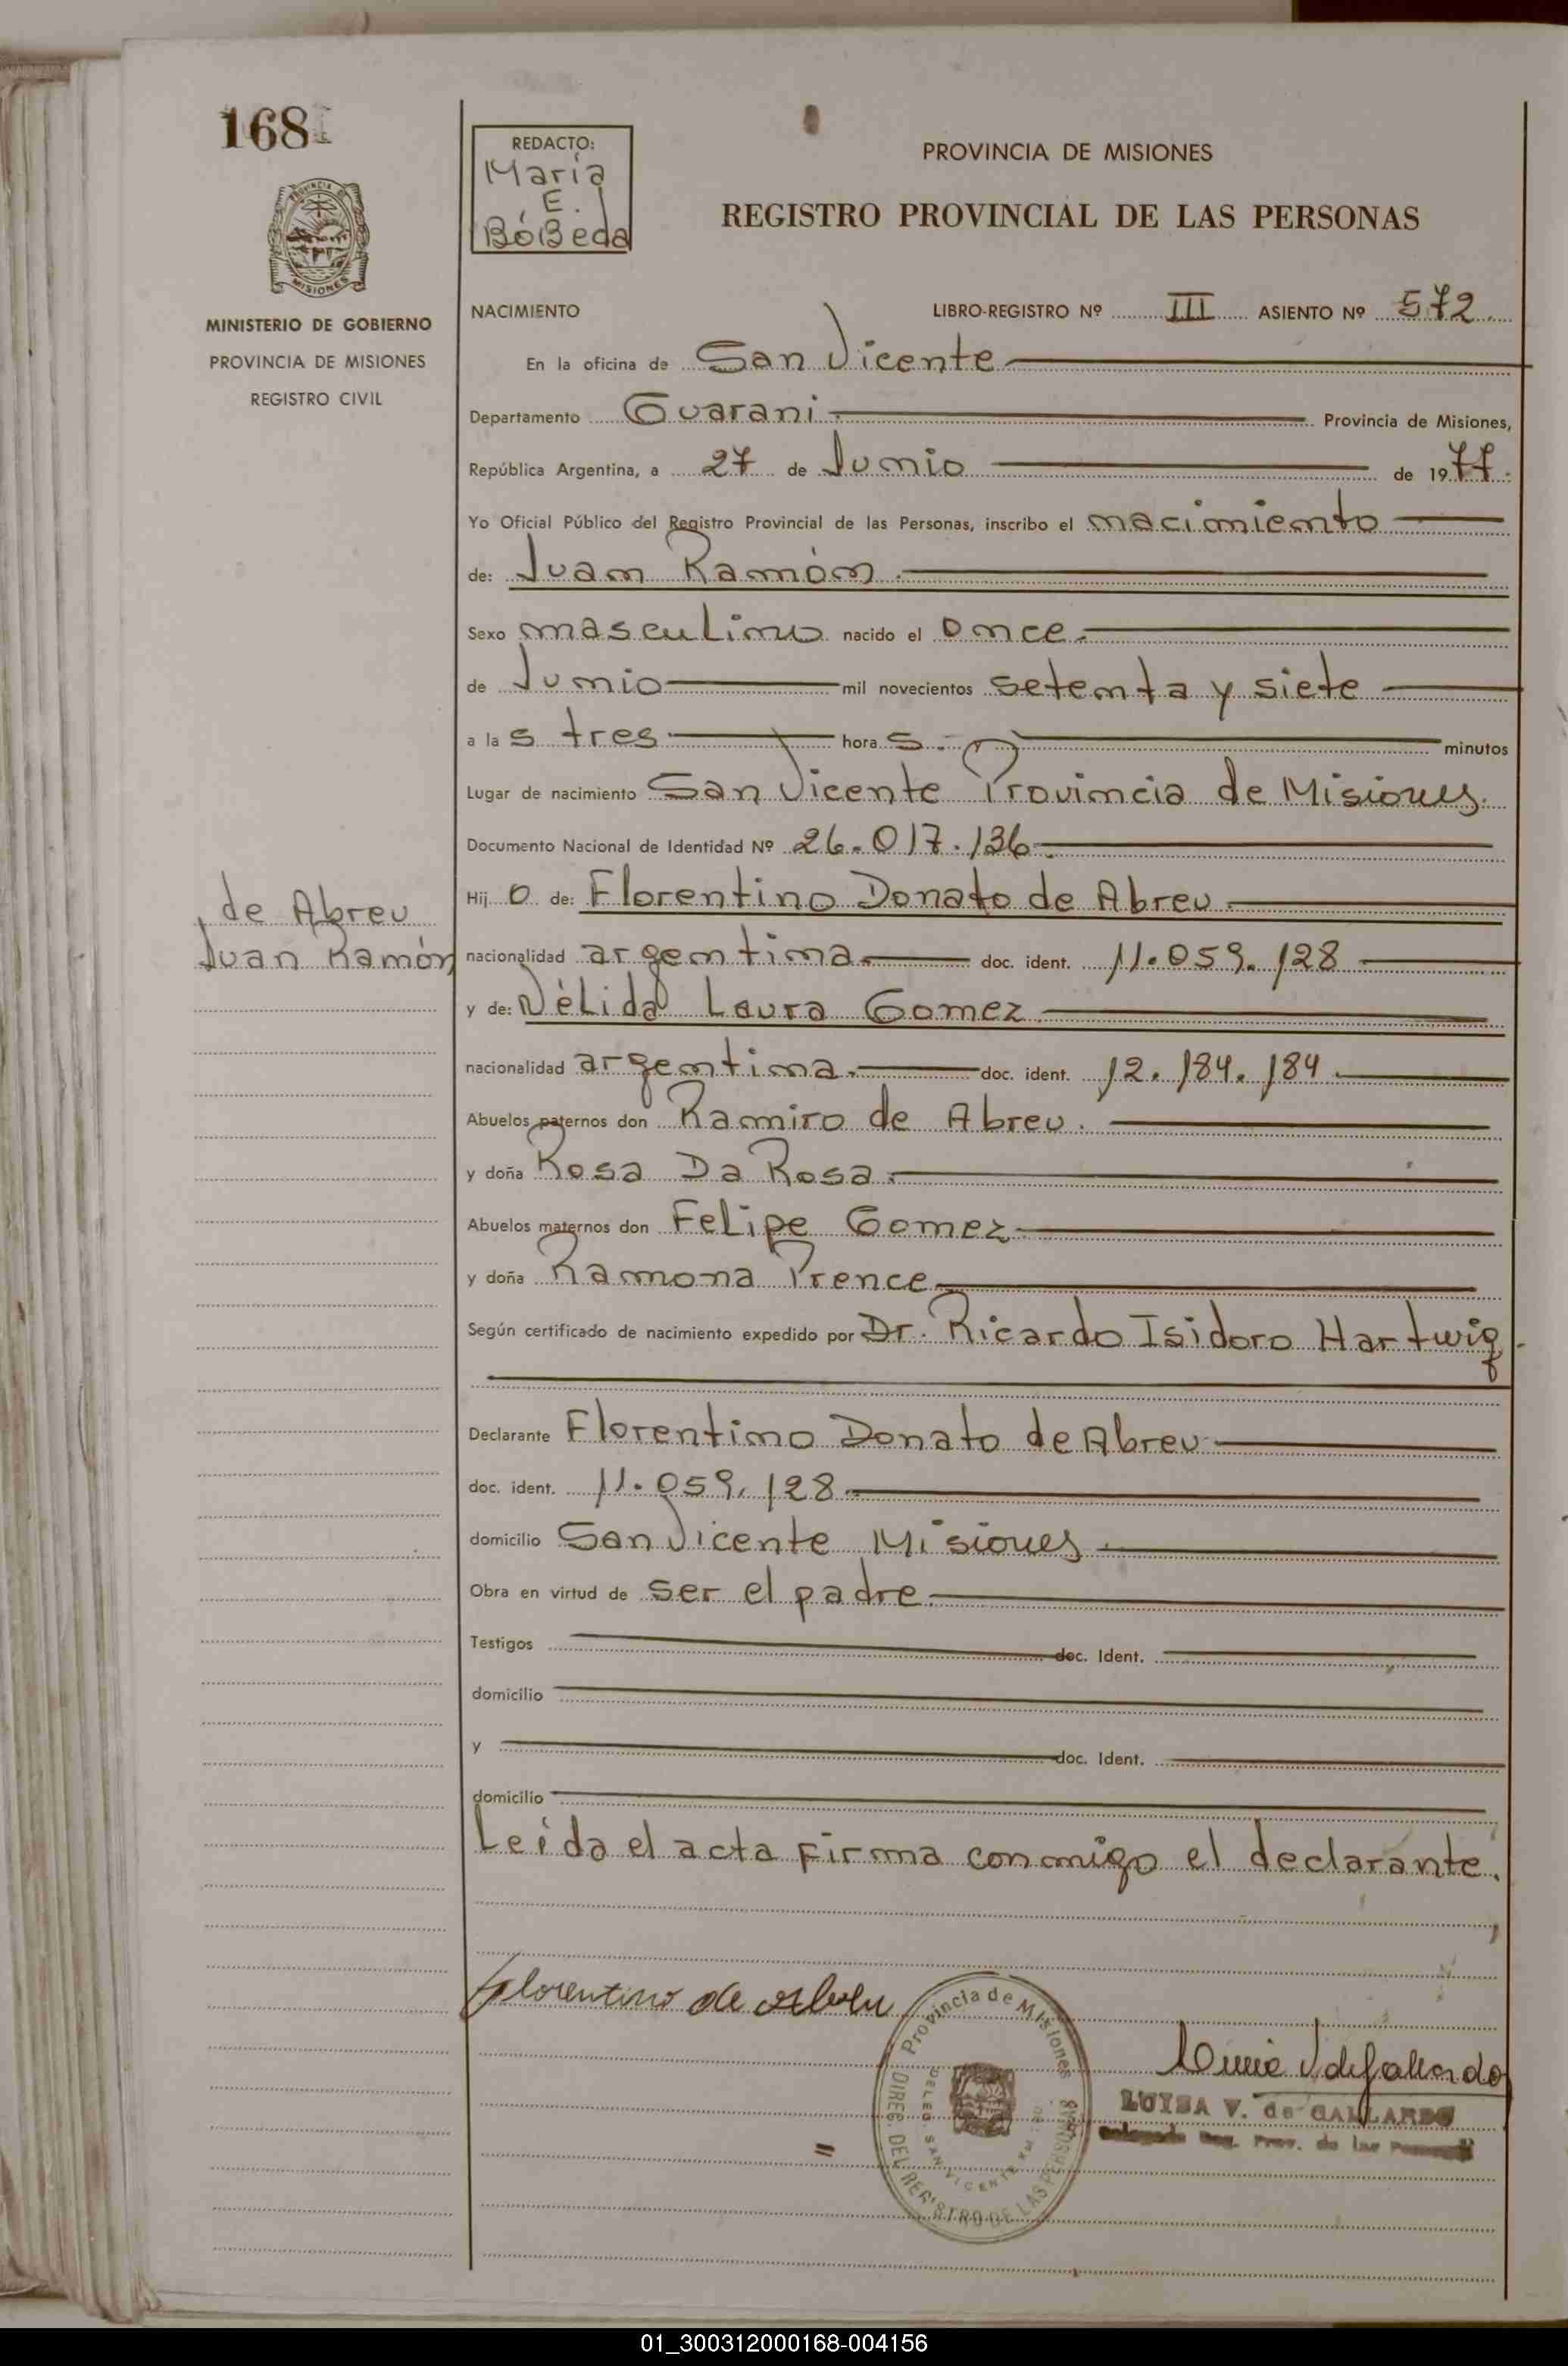 168
REDACTO:
María
E.
BóBeda
PROVINCIA DE MISIONES
REGISTRO PROVINCIAL DE LAS PERSONAS
MINISTERIO DE GOBIERNO
PROVINCIA DE MISIONES
REGISTRO CIVIL
NACIMIENTO LIBRO-REGISTRO Nº III ASIENTO Nº 572
En la oficina de San Vicente
Departamento Guarani Provincia de Misiones,
República Argentina, a 27 de Junio de 1977.
Yo Oficial Público del Registro Provincial de las Personas, inscribo el nacimiento
de: Juan Ramón.
Sexo masculino nacido el once.
de Junio mil novecientos setenta y siete
a las tres horas. minutos
Lugar de nacimiento San Vicente Provincia de Misiones.
Documento Nacional de Identidad Nº 26.017.136
Hijo de: Florentino Donato de Abreu
de Abreu
Juan Ramón
nacionalidad argentina. doc. ident. 11.059.128
y de: Nélida Laura Gomez
nacionalidad argentina. doc. ident. 12.184.184
Abuelos paternos don Ramiro de Abreu.
y doña Rosa Da Rosa.
Abuelos maternos don Felipe Gomez
y doña Ramona Prence
Según certificado de nacimiento expedido por Dr. Ricardo Isidoro Hartwig.
Declarante Florentino Donato de Abreu
doc. ident. 11.059.128
domicilio San Vicente Misiones
Obra en virtud de ser el padre.
Testigos doc. Ident.
domicilio
y doc. Ident.
domicilio
Leída el acta firma conmigo el declarante.
florentino de abreu
Provincia de Misiones
DIREC. DEL REGISTRO DE LAS PERSONAS
DELEG. SAN VICENTE
LUISA V. de GALLARDO
Delegada Reg. Prov. de las Personas
01_300312000168-004156